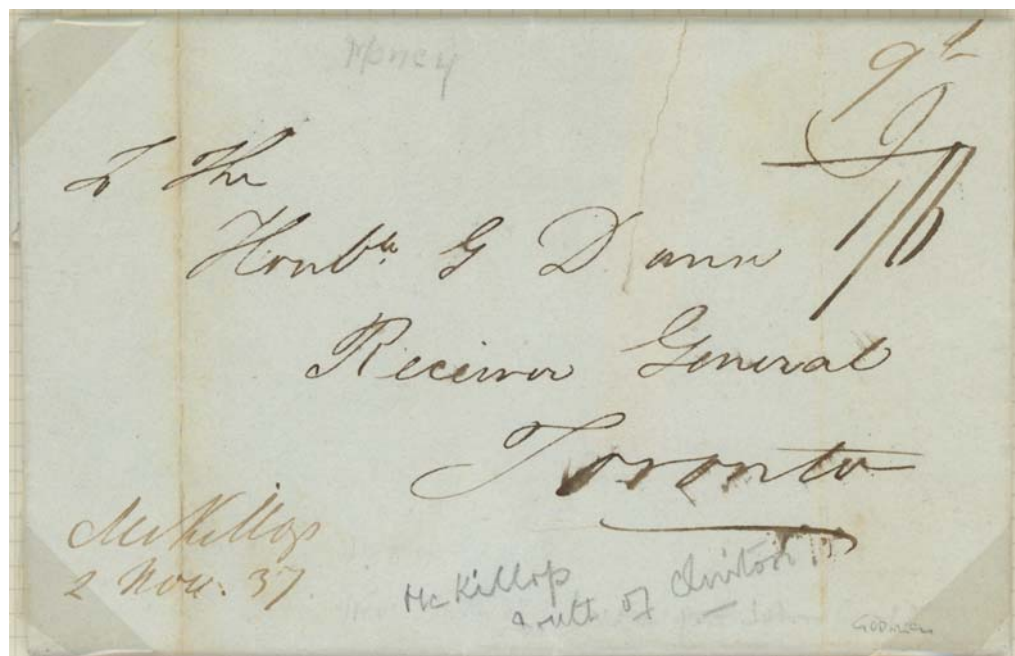 Money
9d
9
1/6
To The
Honble. G Dunn
Receiver General
Toronto
McKillop
2 Nov. 37
McKillop
South of Clinton
Goderich